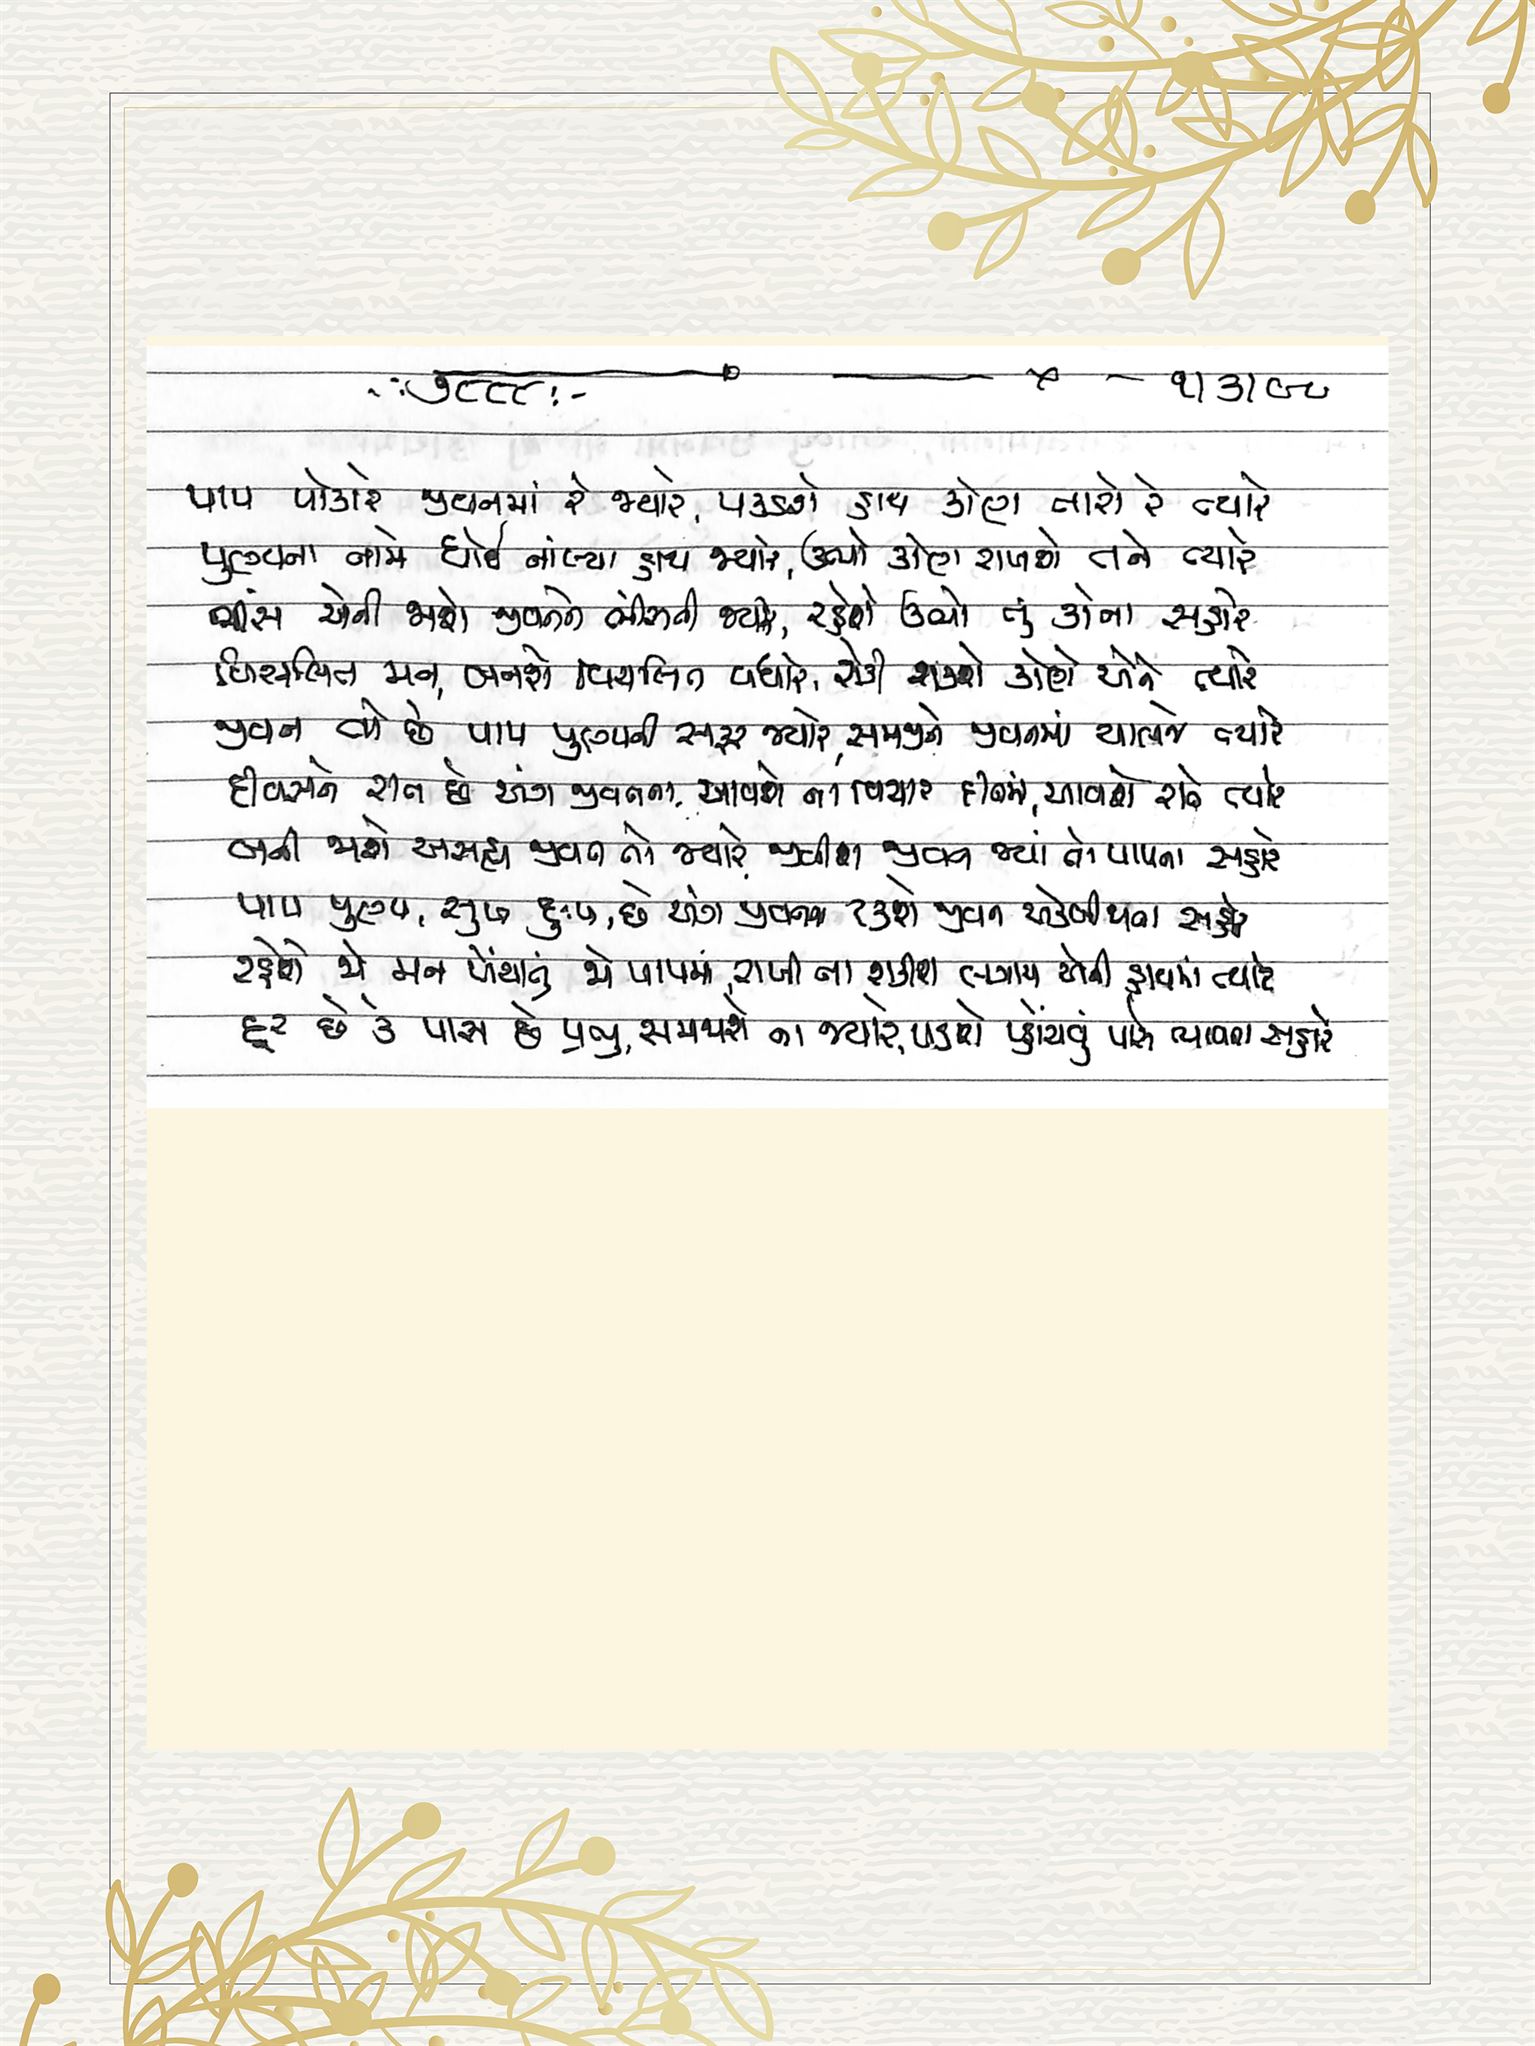 -:૭૮૮૮:- ૧/૩/૯૮
પાપ પોકારે જીવનમાં રે જ્યારે, પકડશે હાથ કોણ તારો રે ત્યારે
પુણ્યના નામે ધોઈ નાંખ્યા હાથ જ્યારે, ઊભો કોણ રાખશે તને ત્યારે
ભીંસ એની જાશે જીવનને ભીંસતી જ્યારે, રહેશે ઊભો તું કોના સહારે
વિચલિત મન, બનશે વિચલિત વધારે, રોકી શકશે કોણ એને ત્યારે
જીવન તો છે પાપ પુણ્યની સફર જ્યારે, સમજીને જીવનમાં ચાલજે ત્યારે
દીવસને રાત છે અંગ જીવનના, આવશે ના વિચાર દીનમાં, આવશે રાતે ત્યારે
બની જાશે અસહ્ય જીવન તો જ્યારે, જીવીશ જીવન જ્યાં તો પાપના સહારે
પાપ પુણ્ય, સુખ દુઃખ, છે અંગ જીવનના ટકશે જીવન એકબીજાના સહારે
રહેશે જો મન ખેંચાતું જો પાપમાં, રાખી ના શકીશ લગામ એની હાથમાં ત્યારે
દૂર છે કે પાસ છે પ્રભુ, સમજાશે ના જ્યારે, પડશે પહોંચવું પાસે સહારે